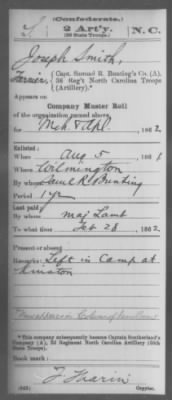 (Confederate.)
S 2 Art'y. N.C.
(36 State Troops.)
Joseph Smith,
Farrier, Capt. Samuel R. Bunting's Co. (A),
36 Reg't North Carolina Troops
(Artillery).*
Appears on
Company Muster Roll
of the organization named above,
for Mch & Apl., 1862.
Enlisted:
When Aug 5, 1861
Where Wilmington
By whom Saml R. Bunting
Period 1 yr
Last paid:
By whom Maj Lamb
To what time Feb 28, 1862.
Present or absent
Remarks: Left in Camp at
Kinston
*This company subsequently became Captain Southerland's
Company (A), 2d Regiment North Carolina Artillery (36th
State Troops).
Book mark:
(642) Copyist.